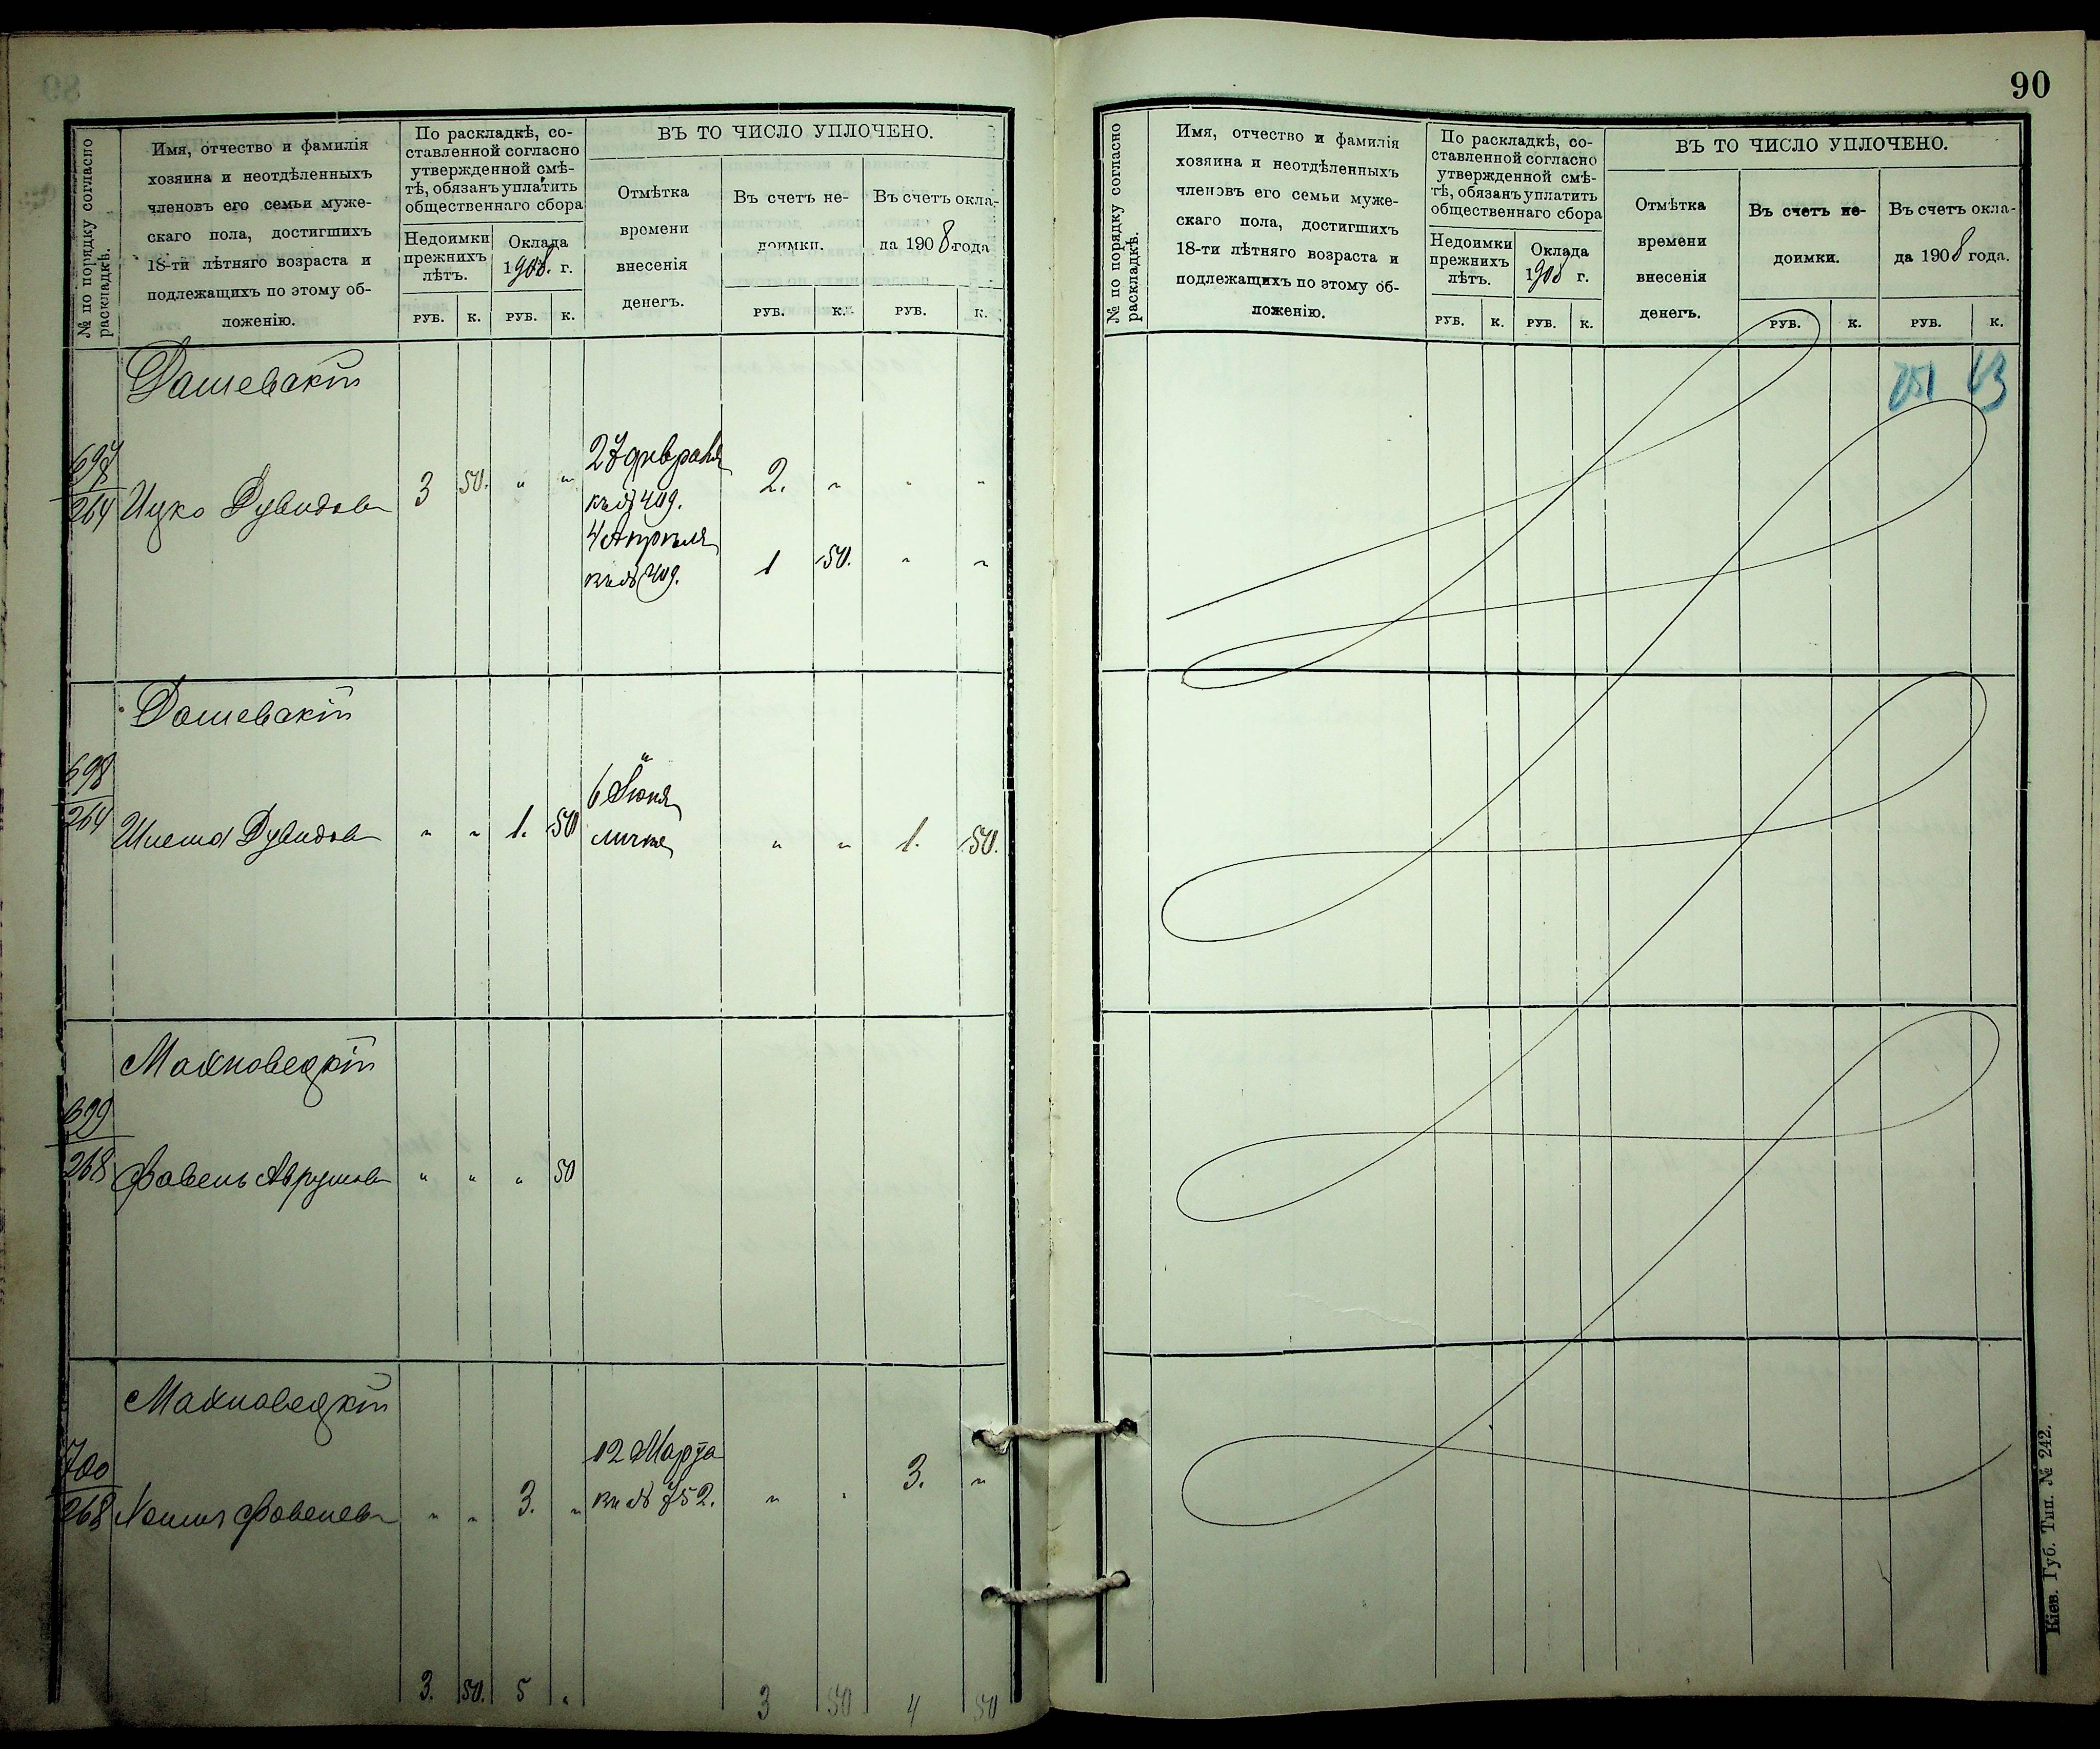 № по порядку согласно раскладкѣ.
Имя, отчество и фамилія
хозяина и неотдѣленныхъ
членовъ его семьи муже-
скаго пола, достигшихъ
18-ти лѣтняго возраста и
подлежащихъ по этому об-
ложенію.
По раскладкѣ, со-
ставленной согласно
утвержденной смѣ-
тѣ, обязанъ уплатить
общественнаго сбора
Недоимки
прежнихъ
лѣтъ.
Оклада
1908. г.
РУБ. К. РУБ. К.
ВЪ ТО ЧИСЛО УПЛОЧЕНО.
Отмѣтка
времени
внесенія
денегъ.
Въ счетъ не-
доимки.
Въ счетъ окла-
да 1908 года
РУБ. К. РУБ. К.
Дашевскій
697
264 Ицко Дувидовъ 3 50. " "
27 февраля 2. " " "
кв № 409.
4 Апрѣля 1 50. " "
кв № 409.
Дашевскій
698
264 Шлема Дувидовъ " " 1. 50
6 Іюня " " 1. 50.
лично
Махновецкій
699
268 Фавель Аврумовъ " " " 50
Махновецкій
700
268 Хаимъ Фавелевъ " " 3. "
12 Марта " " 3. "
кв № 752.
3. 50. 5 " 3 50 4 50
90
№ по порядку согласно раскладкѣ.
Имя, отчество и фамилія
хозяина и неотдѣленныхъ
членовъ его семьи муже-
скаго пола, достигшихъ
18-ти лѣтняго возраста и
подлежащихъ по этому об-
ложенію.
По раскладкѣ, со-
ставленной согласно
утвержденной смѣ-
тѣ, обязанъ уплатить
общественнаго сбора
Недоимки
прежнихъ
лѣтъ.
Оклада
1908 г.
РУБ. К. РУБ. К.
ВЪ ТО ЧИСЛО УПЛОЧЕНО.
Отмѣтка
времени
внесенія
денегъ.
Въ счетъ не-
доимки.
Въ счетъ окла-
да 1908 года.
РУБ. К. РУБ. К.
Кіев. Губ. Тип. № 242.